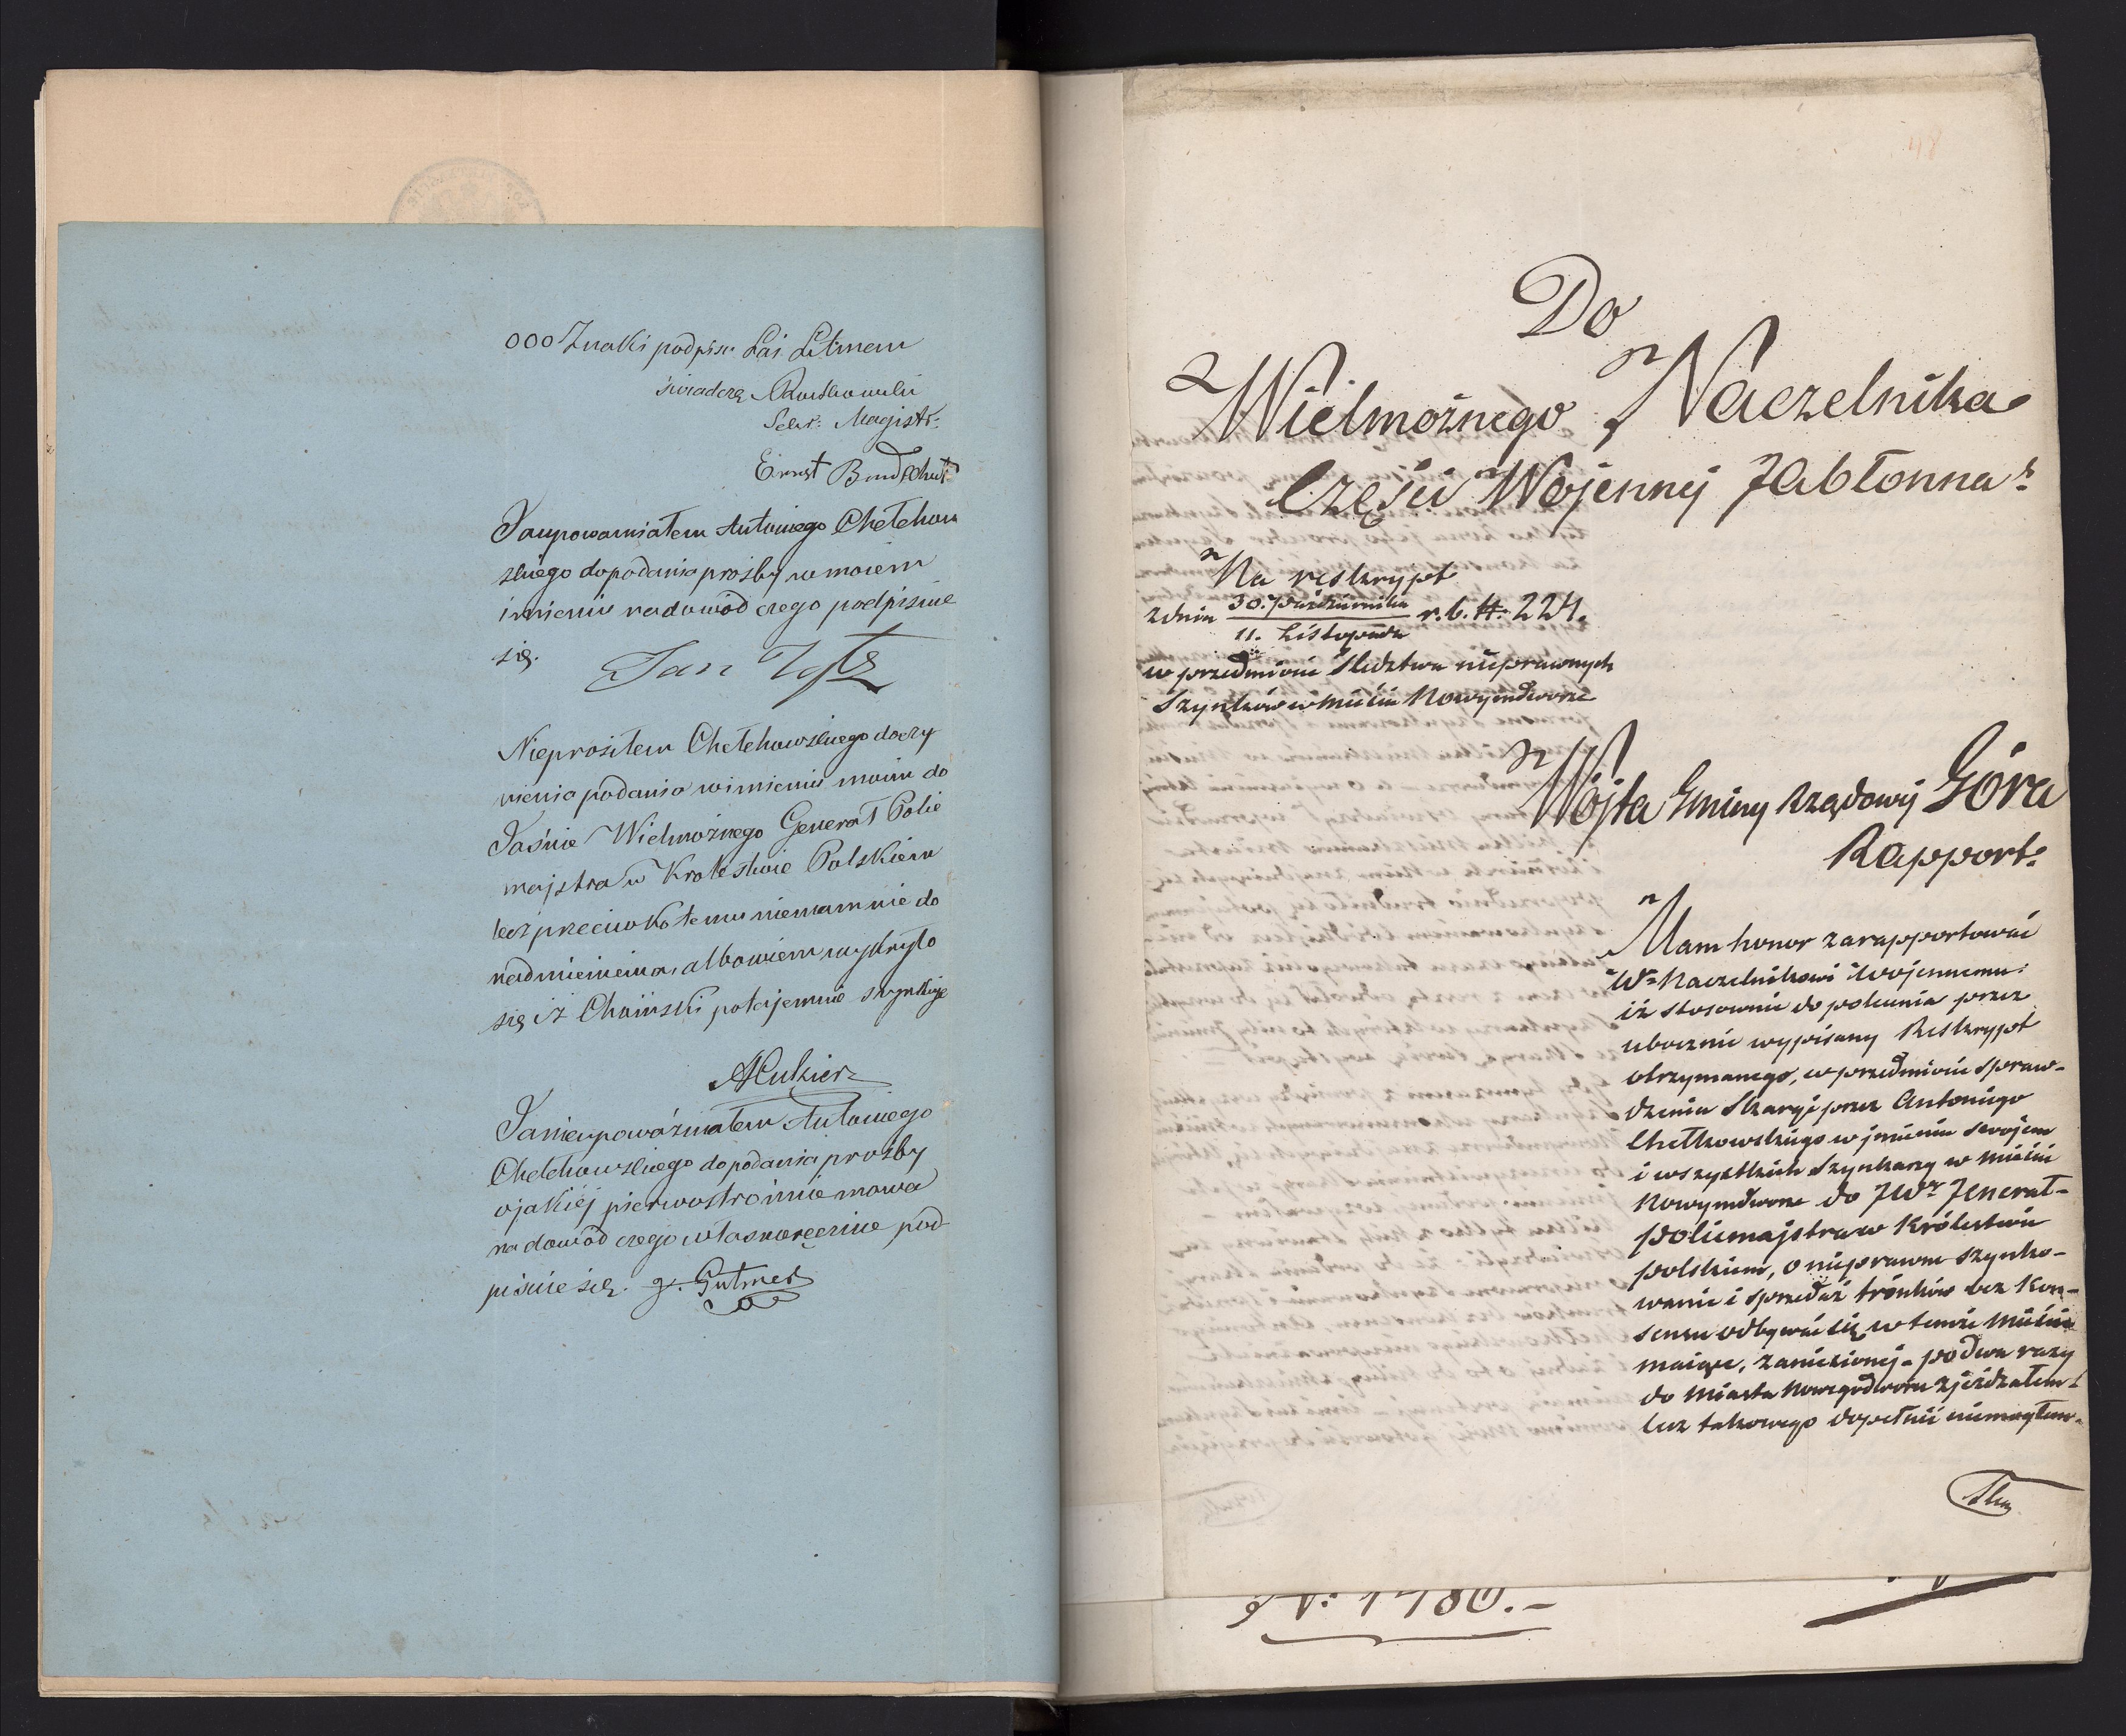 000 Znaki podpisu Laj. Litman
świadczę
Sekr: Magistr:
Ernst
Jaupoważniałem Antoniego Chełchow
skiego dopodania prośby wmoiem
imieniu nadowód czego podpisuie
się.
Jan
Nieprosiłem Chełchowskiego doczy
nienia podania wimieniu moim do
Jaśnie Wielmożnego Generał Polic
majstra w Krolestwie Polskiem
lecz przeciwko temu niemam nic do
nadmienienia, albowiem wykryło
się iż Chaiński potajemnie szynkuje
A Cukier
Janieupoważniałem Antoniego
Chełchowskiego dopodania prośby
ojakiéj pierwostronnie mowa
na dowód czego własnoręcznie pod
pisuie się. J. Gutmer
48
Do
Wielmożnego Naczelnika
Części Wojennej Jabłonna
Na reskrypt
z dnia 30. Października r. b. N. 224.
11. Listopada
w przedmiocie Śledztwa nieprawnych
Szynków w mieście Nowymdworze
Wójta Gminy Rządowej Góra
Rapport.
Mam honor zarapportować
W. Naczelnikowi Wojennemu
iż stosownie do polecenia przez
ubocznie wypisany Reskrypt
otrzymanego, w przedmiocie spraw-
dzenia Skargi przez Antoniego
Chełkowskiego w jmieniu swojem
i wszystkich Szynkarzy w mieście
Nowymdworze do JW. Jenerał-
policmajstra w Królestwie
polskiem, o nieprawne szynko-
wanie i sprzedaż trónków bez Kon-
sensu odbywać się w temże mieście
maiące, zaniesionej - po dwa razy
do Miasta Nowegodworu zjeżdżałem
lecz takowego dopełnić niemogłem
N. 1480.